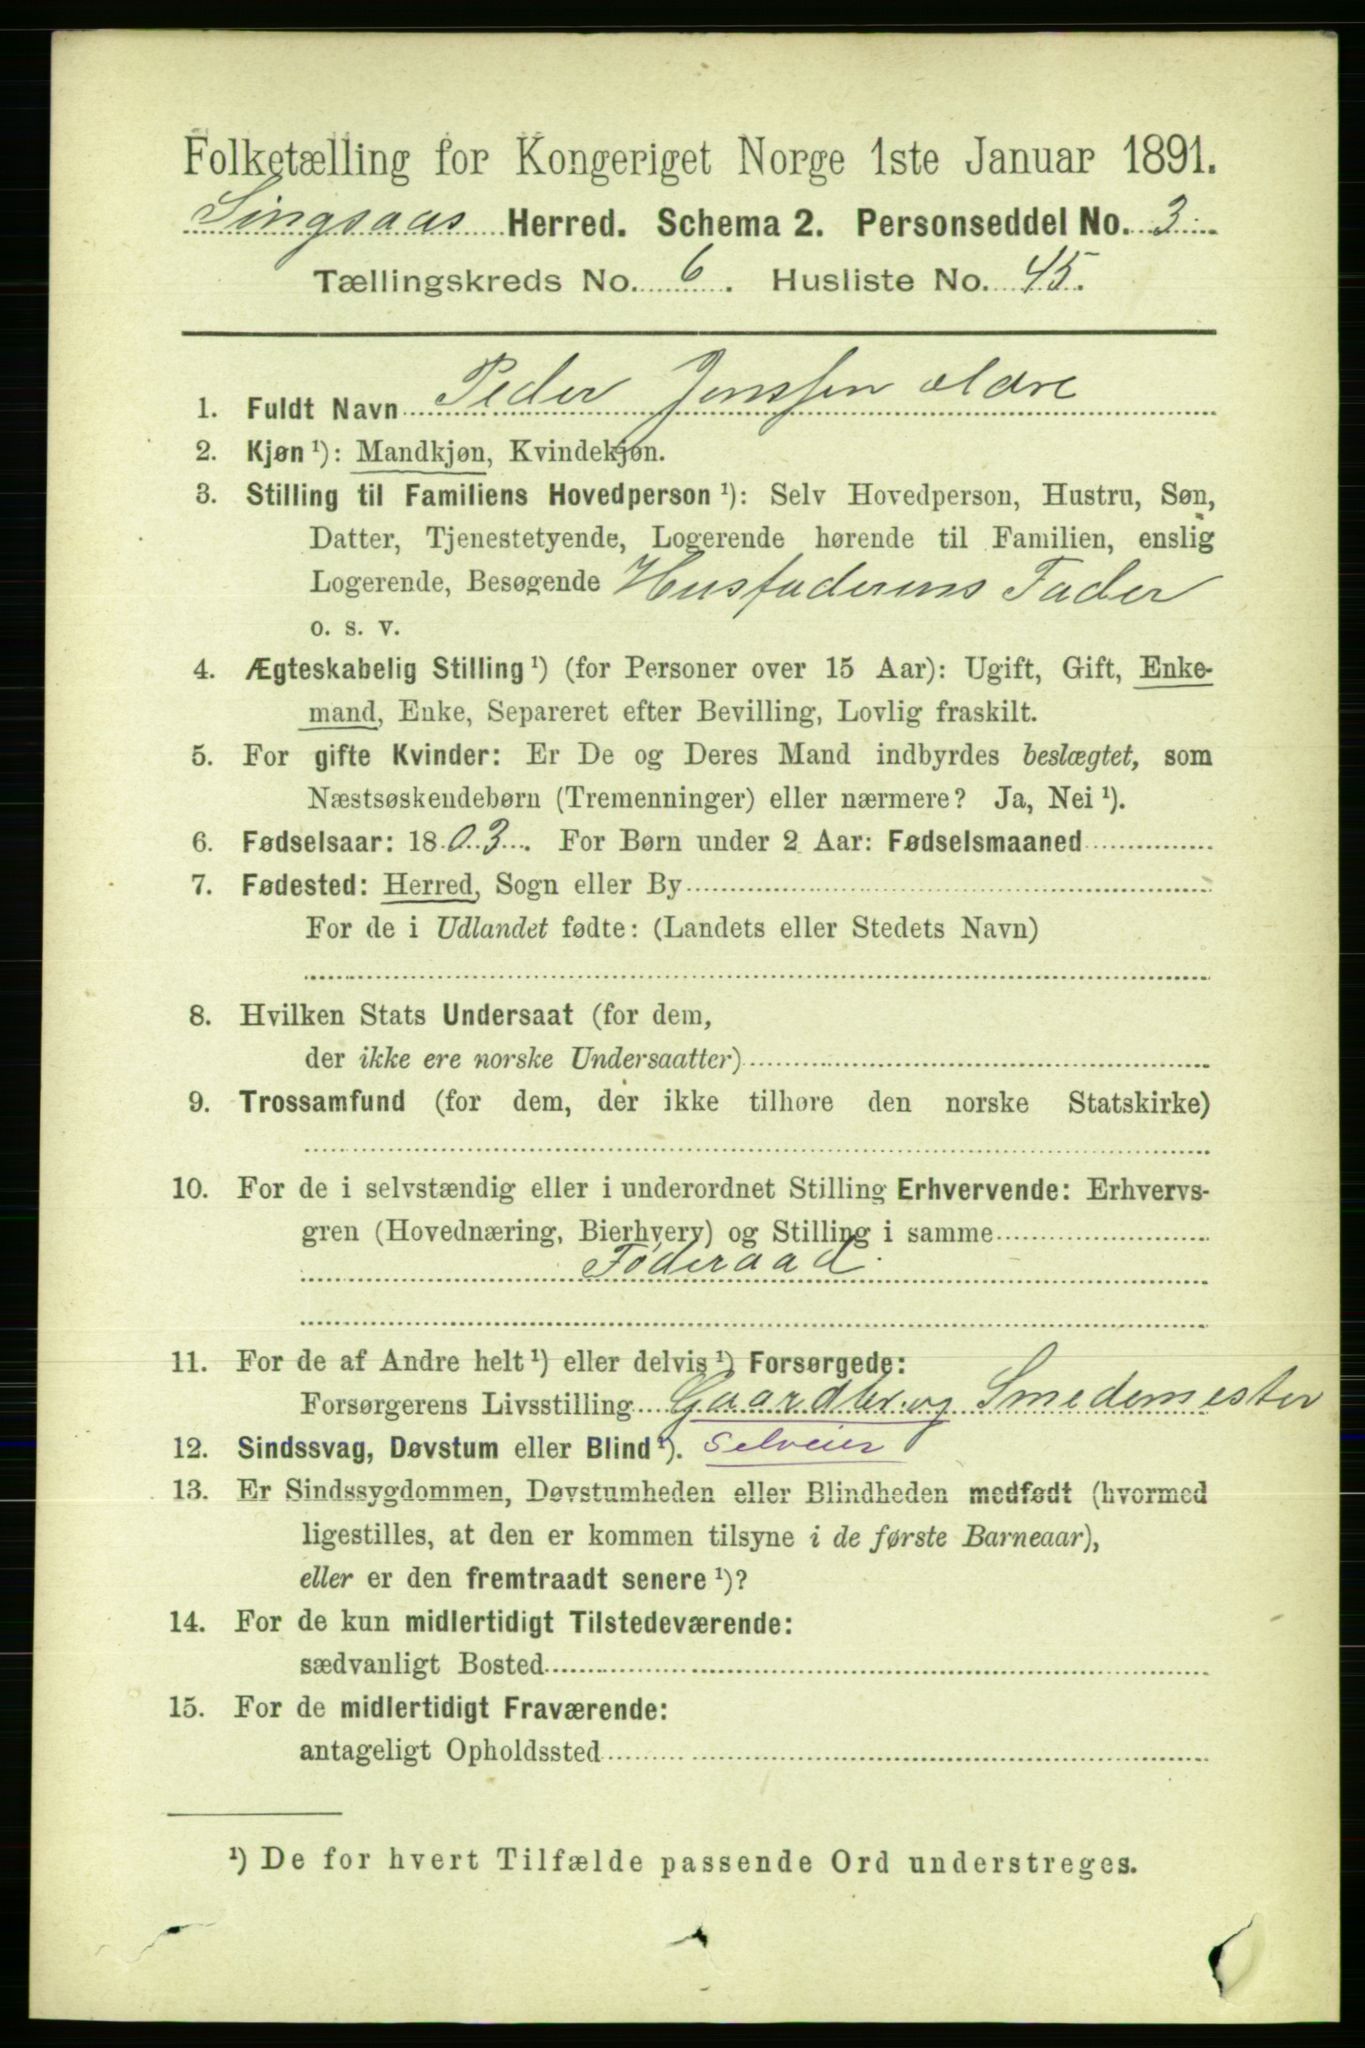 Folketælling for Kongeriget Norge 1ste Januar 1891.
Singsaas Herred. Schema 2. Personseddel No. 3
Tællingskreds No. 6. Husliste No. 45.
1. Fuldt Navn Peder Jenssen ældre
2. Kjøn ¹): Mandkjøn, Kvindekjøn.
3. Stilling til Familiens Hovedperson ¹): Selv Hovedperson, Hustru, Søn,
Datter, Tjenestetyende, Logerende hørende til Familien, enslig
Logerende, Besøgende Husfaderens Fader
o. s. v.
4. Ægteskabelig Stilling ¹) (for Personer over 15 Aar): Ugift, Gift, Enke-
mand, Enke, Separeret efter Bevilling, Lovlig fraskilt.
5. For gifte Kvinder: Er De og Deres Mand indbyrdes beslægtet, som
Næstsøskendebørn (Tremenninger) eller nærmere? Ja, Nei ¹).
6. Fødselsaar: 1803. For Børn under 2 Aar: Fødselsmaaned
7. Fødested: Herred, Sogn eller By
For de i Udlandet fødte: (Landets eller Stedets Navn)
8. Hvilken Stats Undersaat (for dem,
der ikke ere norske Undersaatter)
9. Trossamfund (for dem, der ikke tilhøre den norske Statskirke)
10. For de i selvstændig eller i underordnet Stilling Erhvervende: Erhvervs-
gren (Hovednæring, Bierhverv) og Stilling i samme
Føderaad.
11. For de af Andre helt ¹) eller delvis ¹) Forsørgede:
Forsørgerens Livsstilling Gaardbr. og Smedemester
12. Sindssvag, Døvstum eller Blind ¹). Selveier
13. Er Sindssygdommen, Døvstumheden eller Blindheden medfødt (hvormed
ligestilles, at den er kommen tilsyne i de første Barneaar),
eller er den fremtraadt senere ¹)?
14. For de kun midlertidigt Tilstedeværende:
sædvanligt Bosted
15. For de midlertidigt Fraværende:
antageligt Opholdssted
¹) De for hvert Tilfælde passende Ord understreges.